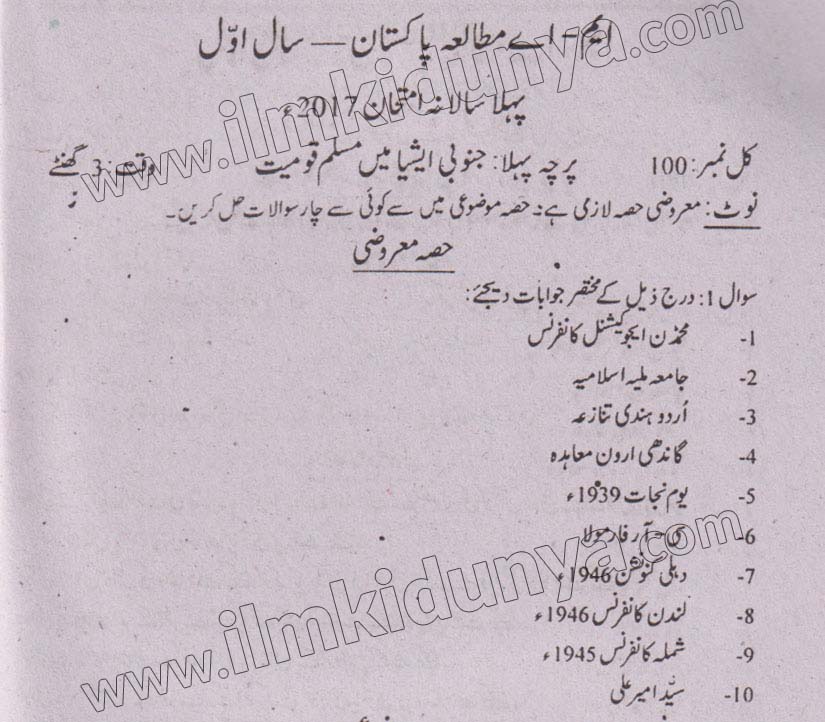 ایم-اے مطالعہ پاکستان — سال اوّل
پہلا سالانہ امتحان 2017ء
کل نمبر: 100 پرچہ پہلا: جنوبی ایشیا میں مسلم قومیت وقت: 3 گھنٹے
نوٹ: معروضی حصہ لازمی ہے۔ حصہ موضوعی میں سے کوئی سے چار سوالات حل کریں۔
حصہ معروضی
سوال 1: درج ذیل کے مختصر جوابات دیجئے:
1- محمڈن ایجوکیشنل کانفرنس
2- جامعہ ملیہ اسلامیہ
3- اُردو ہندی تنازعہ
4- گاندھی ارون معاہدہ
5- یوم نجات 1939ء
6- سی-آر فارمولا
7- دہلی کنونشن 1946ء
8- لندن کانفرنس 1946ء
9- شملہ کانفرنس 1945ء
10- سیّد امیر علی
www.ilmkidunya.com
www.ilmkidunya.com